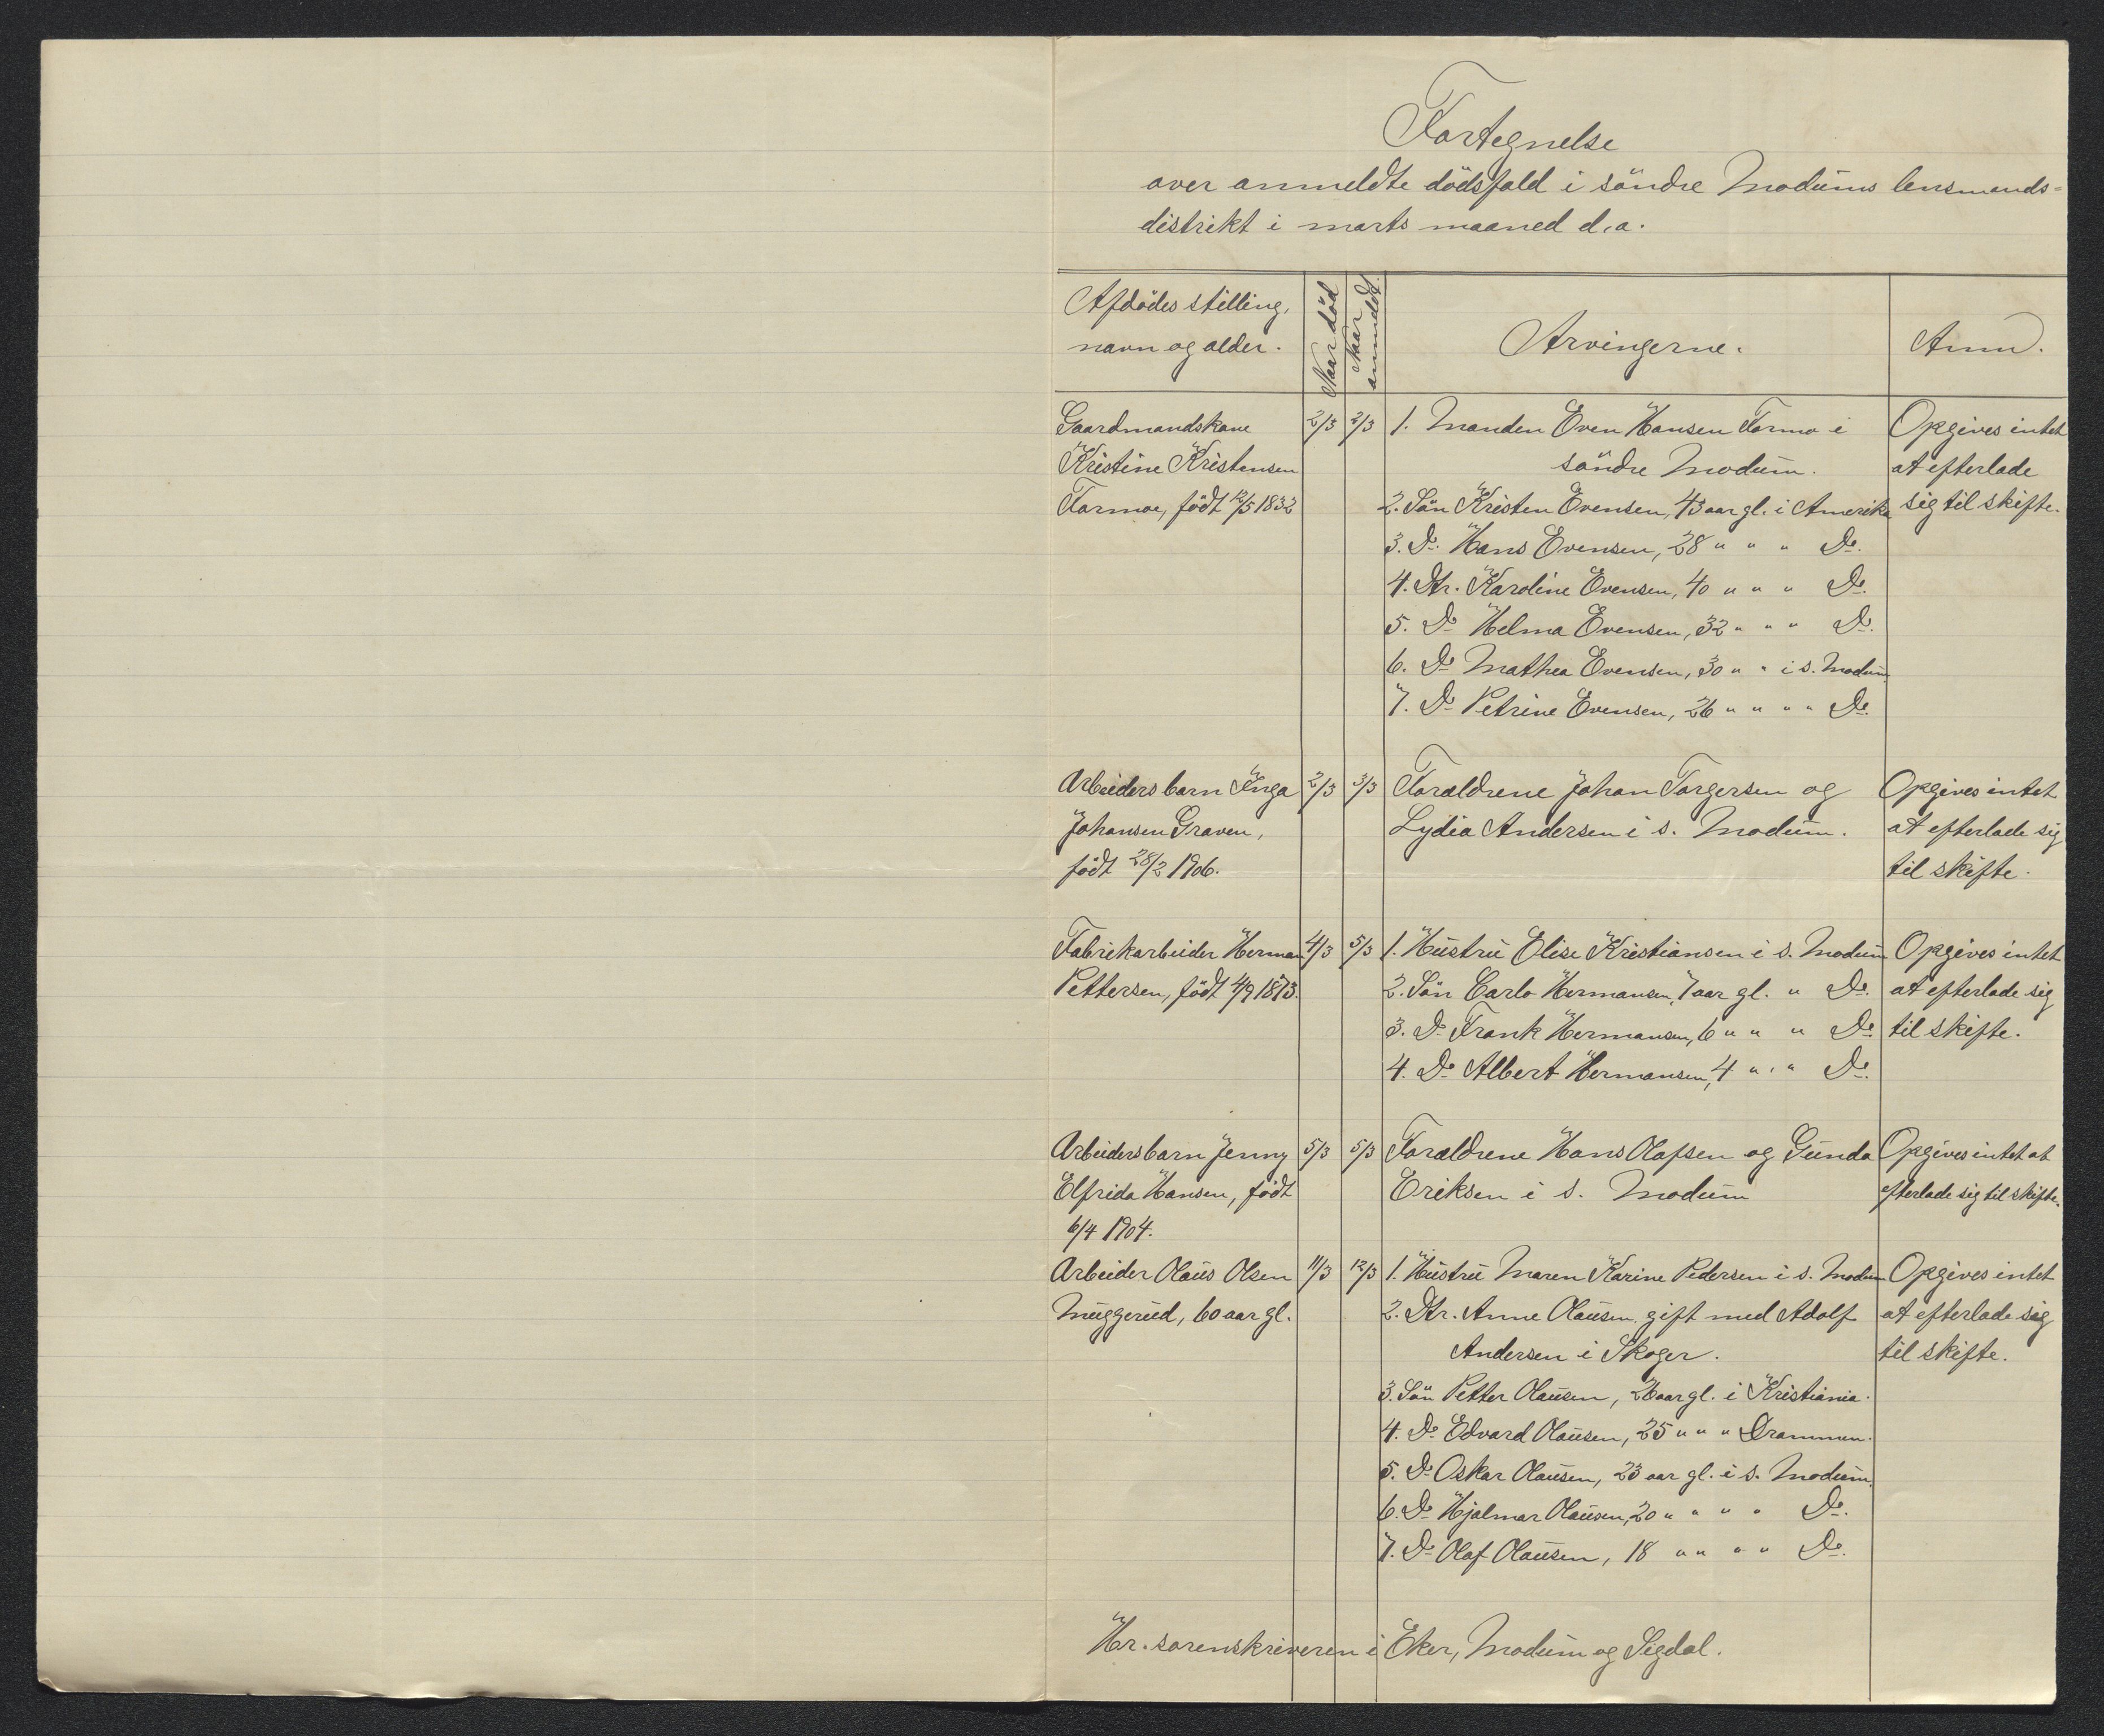 Fortegnelse
over anmeldte dödsfald i söndre Modums lensmands-
distrikt i marts maaned d.a.
Afdödes stilling, navn og alder. | Naar död | Naar anmeldt. | Arvingerne. | Anm.
Gaardmandskone | 2/3 | 2/3 | 1. Manden Even Hansen Formo i | Opgives intet
Kristine Kristensen | söndre Modum. | at efterlade
Formoe, födt 12/5 1832 | 2. Sön Kristen Evensen, 43 aar gl. i Amerika | sig til skifte.
3. Do. Hans Evensen, 28 " " " Do.
4. Dtr. Karoline Evensen, 40 " " " Do.
5. Do Helma Evensen, 32 " " " Do.
6. Do Mathea Evensen, 30 " " i s. Modum
7. Do Petrine Evensen, 26 " " " " Do.
Arbeidersbarn Inga | 2/3 | 3/3 | Forældrene Johan Torgersen og | Opgives intet
Johansen Graven, | Lydia Andersen i s. Modum. | at efterlade sig
födt 28/2 1906. | til skifte.
Fabrikarbeider Herman | 4/3 | 5/3 | 1. Hustru Elise Kristiansen i s. Modum | Opgives intet
Pettersen, födt 4/9 1873. | 2. Sön Carlo Hermansen, 7 aar gl. " Do. | at efterlade sig
3. Do Frank Hermansen, 6 " " " Do. | til skifte.
4. Do Albert Hermansen, 4 " " " Do.
Arbeidersbarn Jenny | 5/3 | 5/3 | Forældrene Hans Olafsen og Gunda | Opgives intet at
Elfrida Hansen, födt | Eriksen i s. Modum | efterlade sig til skifte.
6/4 1904.
Arbeider Olaus Olsen | 11/3 | 12/3 | 1. Hustru Maren Karine Pedersen i s. Modum | Opgives intet
Muggerud, 60 aar gl. | 2. Dtr. Anne Olausen gift med Adolf | at efterlade sig
Andersen i Skoger. | til skifte.
3. Sön Petter Olausen, 26 aar gl. i Kristiania.
4. Do Edvard Olausen, 25 " " " Drammen.
5. Do Oskar Olausen, 23 aar gl. i s. Modum.
6. Do Hjalmar Olausen, 20 " " " " Do.
7. Do Olaf Olausen, 18 " " " " Do.
Hr. sorenskriveren i Eker, Modum og Sigdal.